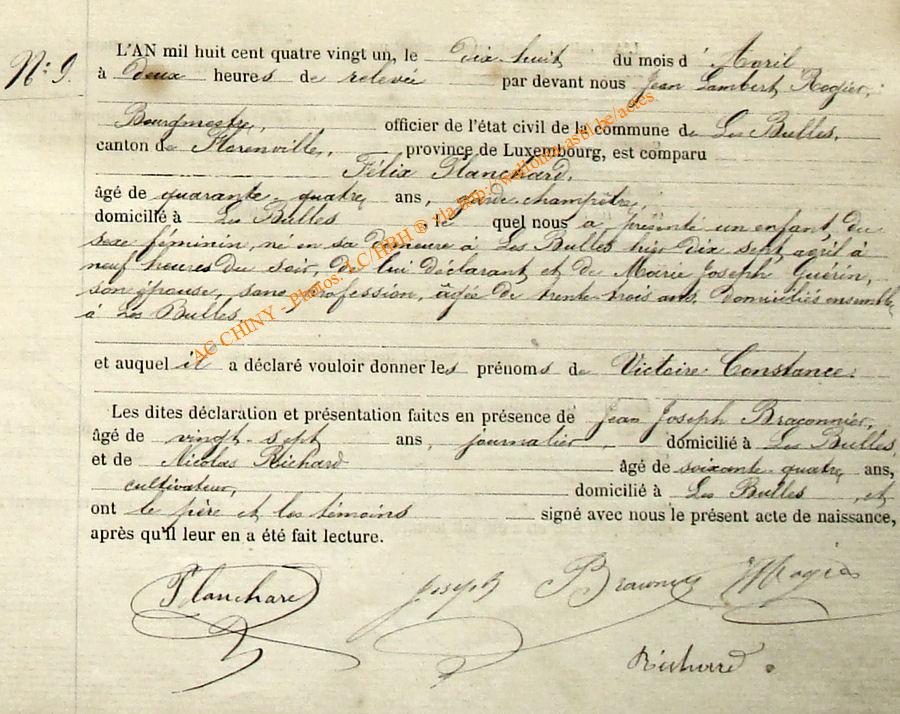 N: 9.
L'AN mil huit cent quatre vingt un, le dix-huit du mois d' Avril
à deux heures de relevée par devant nous Jean Lambert Rogier,
Bourgmestre, officier de l'état civil de la commune de Les Bulles,
canton de Florenville, province de Luxembourg, est comparu
Félix Planchard,
âgé de quarante-quatre ans, garde champêtre,
domicilié à Les Bulles le quel nous a présenté un enfant, du
sexe féminin, né en sa demeure à Les Bulles hier dix sept avril à
neuf heures du soir, de lui déclarant, et de Marie Joseph Guérin,
son épouse, sans profession, âgée de trente-trois ans, domiciliés ensemble
à Les Bulles
et auquel il a déclaré vouloir donner les prénoms de Victoire Constance.
Les dites déclaration et présentation faites en présence de Jean Joseph Braconnier,
âgé de vingt-sept ans, journalier, domicilié à Les Bulles,
et de Nicolas Richard âgé de soixante-quatre ans,
cultivateur, domicilié à Les Bulles, et
ont le père et les témoins signé avec nous le présent acte de naissance,
après qu'il leur en a été fait lecture.
Planchard Joseph Rogier
Richard
AC CHINY - Photos AC/HBH ® via http://wallonia.asbl.be/actes